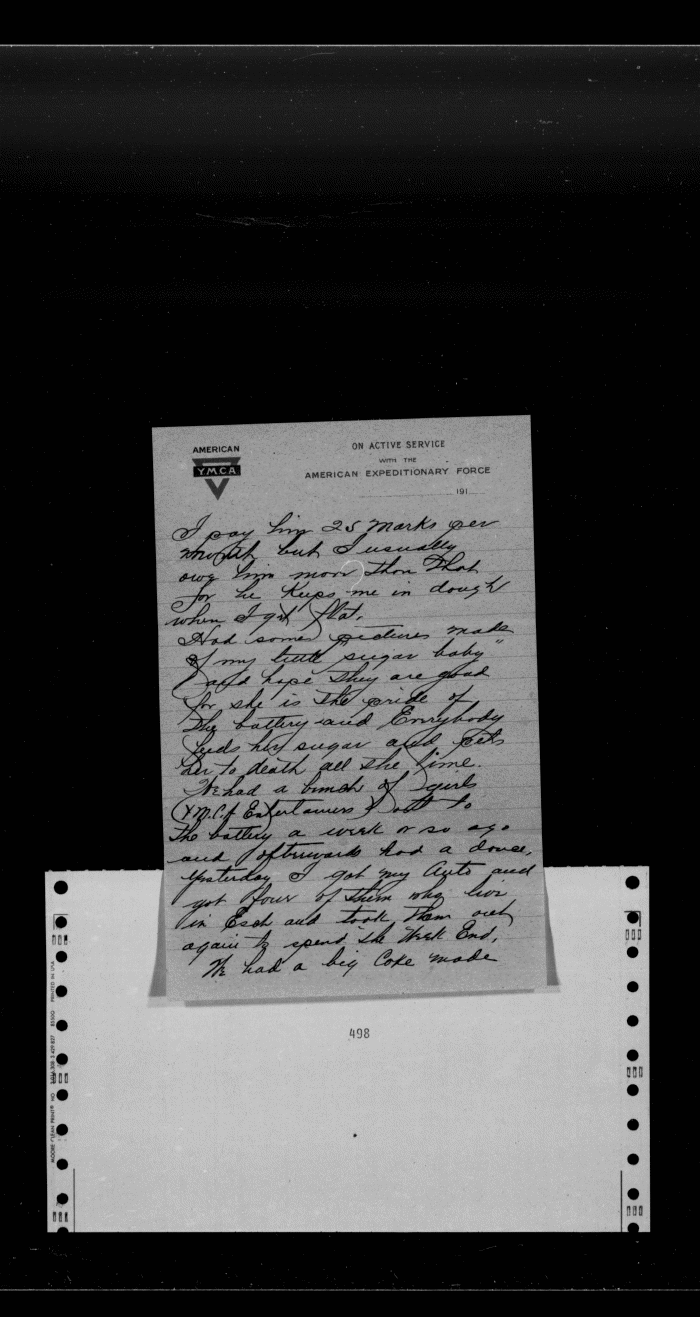 AMERICAN
Y.M.C.A.
ON ACTIVE SERVICE
WITH THE
AMERICAN EXPEDITIONARY FORCE
191
I pay him 25 Marks per
month but I usually
owe him more than that
for he keeps me in dough
when I get flat.
Had some pictures made
of my little sugar baby"
and hope they are good
for she is the pride of
the battery and Everybody
feeds her sugar and pets
her to death all the time.
We had a bunch of girls
(Y.M.C.A Entertainers) out to
the battery a week or so ago
and afterwards had a dance.
Yesterday I got my Auto and
got four of them who live
in Esch and took them out
again to spend the Week End.
We had a big Cake made
498
PRINTED IN USA
MOORE CLEAN PRINT